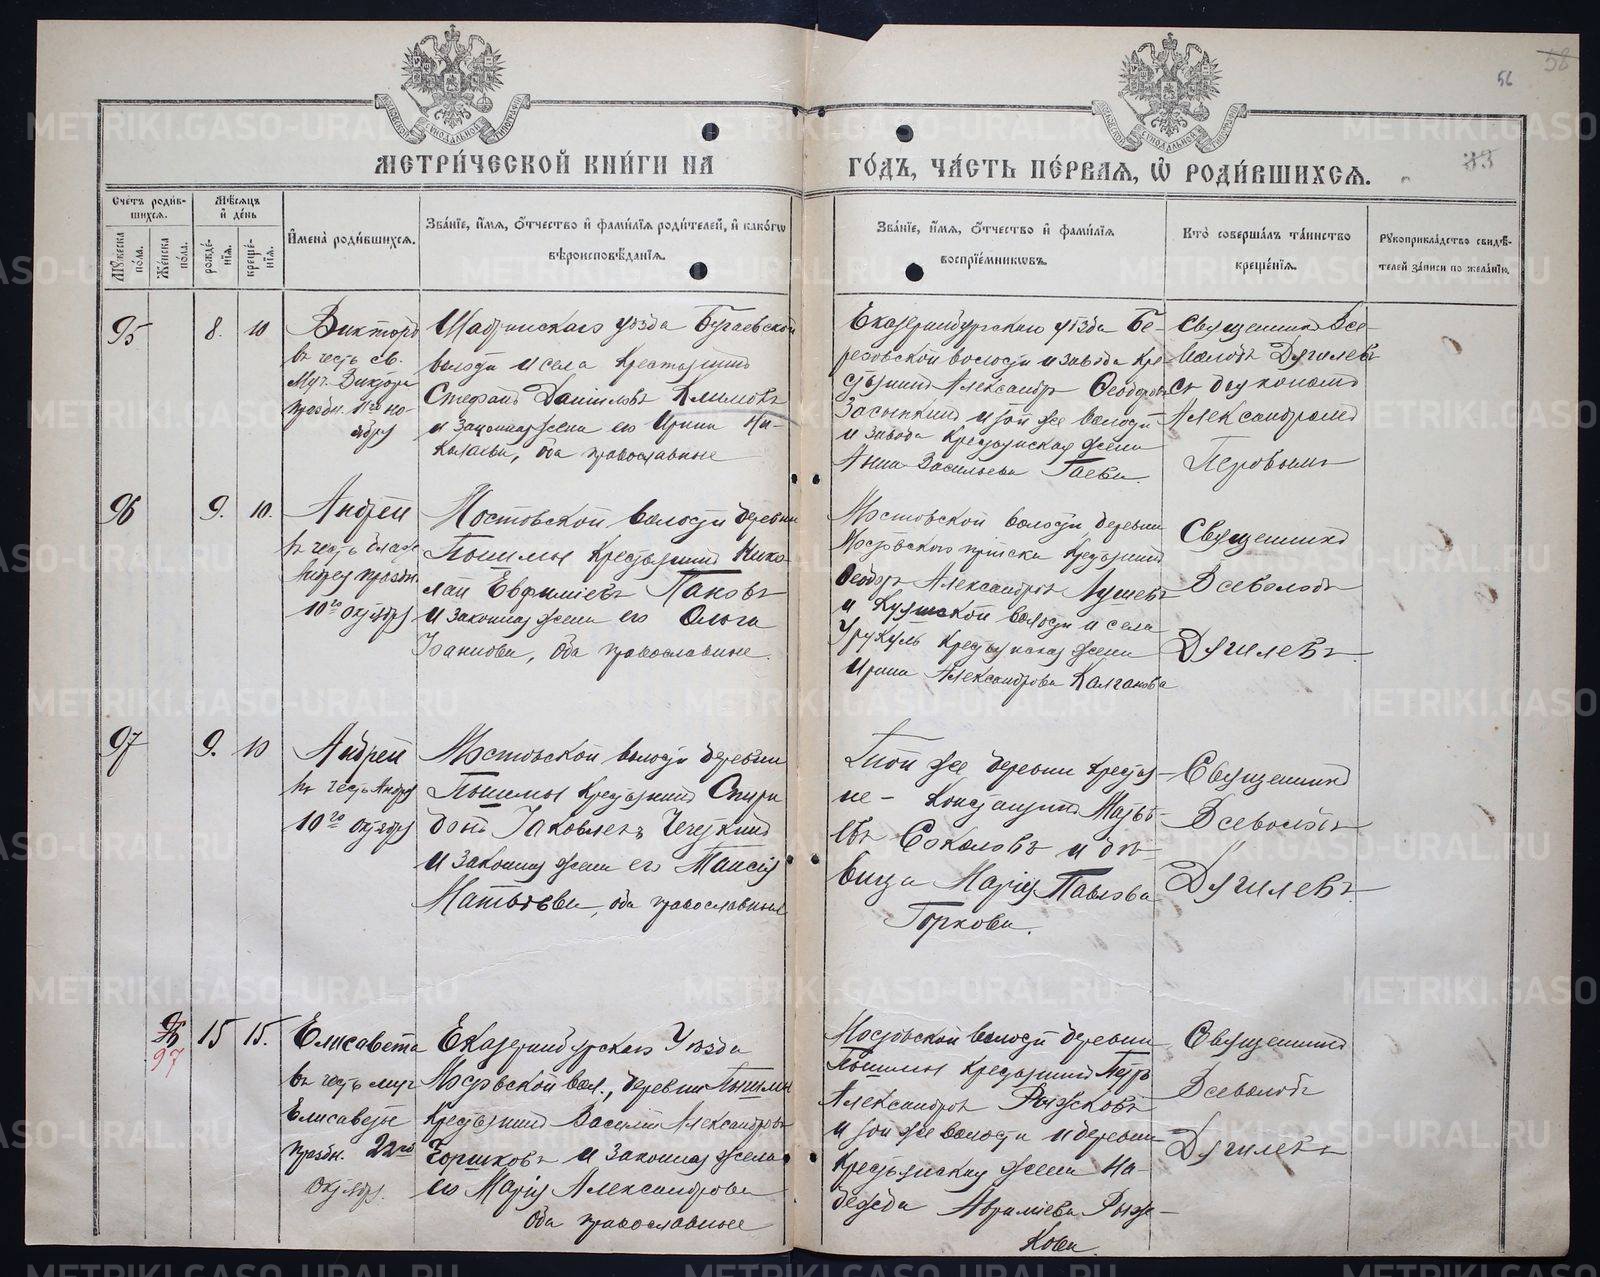 56
58
33
МЕТРИ́ЧЕСКОЙ КНИ́ГИ НА
ГО́ДЪ, ЧА́СТЬ ПЕ́РВАѦ, Ѡ҆ РОДИ́ВШИХСѦ.
Сче́тъ роди́в-
шихсѧ.
Мѣ́сѧцъ
и҆ де́нь
Мꙋ́жеска
по́ла.
Же́нска
по́ла.
рожде́-
нїѧ.
креще́-
нїѧ.
И҆мена̀ роди́вшихсѧ.
Зва́нїе, и҆́мѧ, ѻ҆́тчество и҆ фами́лїѧ роди́телей, и҆ како́гѡ
вѣроисповѣ́данїѧ.
Зва́нїе, и҆́мѧ, ѻ҆́тчество и҆ фами́лїѧ
воспрїе́мникѡвъ.
Кто̀ соверша́лъ та́инство
креще́нїѧ.
Рꙋкоприкла́дство свидѣ́-
телей за́писи по жела́нїю.
95
8.
10
Викторъ
въ честь св.
Муч. Виктора
праздн. 11го но-
ября
Шадринскаго уѣзда Бугаевской
волости и села крестьянинъ
Стефанъ Даниловъ Климовъ
и законная жена его Ирина Ни-
колаева, оба православные
Екатеринбургскаго уѣзда Бе-
резовской волости и завода кре
стьянинъ Александръ Ѳеодоровъ
Засыпкинъ и той же волости
и завода крестьянская жена
Анна Васильева Гаева.
Священникъ Все-
володъ Дягилевъ
съ діакономъ
Александромъ
Петровымъ
96
9.
10.
Андрей
въ честь блаж
Андрея праздн.
10го октября
Мостовской волости деревни
Пышмы крестьянинъ Нико-
лай Евфиміевъ Пановъ
и законная жена его Ольга
Іванова, оба православные.
Мостовской волости деревни
Мостовского приiска крестьянинъ
Ѳеодоръ Александровъ
и волости и села
крестьянская жена
Ирина Александрова Калганова
Священникъ
Всеволодъ
Дягилевъ.
97
9.
10
Андрей
въ честь Андрея
10го октября
Мостовской волости деревни
Пышмы крестьянинъ Спири
донъ Іаковлевъ
и законная жена его Таисія
Матвѣева, оба православные
Той же деревни крестья-
не – Константинъ Матвѣ-
евъ Соколовъ и дѣ-
вица Марія Павлова
Горкова.
Священникъ
Всеволодъ
Дягилевъ.
97
15
15.
Елисавета
въ честь муч
Елисаветы
праздн. 22го
октября.
Екатеринбургскаго Уѣзда
Мостовской вол., деревни Пышмы
крестьянинъ Василій Александровъ
и законная жена
его Марія Александрова
оба православные
Мостовской волости деревни
Пышмы крестьянинъ Петръ
Александровъ Рыжковъ
и той же волости и деревни
крестьянская жена На-
дежда Авраміева Рыж-
кова.
Священникъ
Всеволодъ
Дягилевъ
METRIKI.GASO-URAL.RU